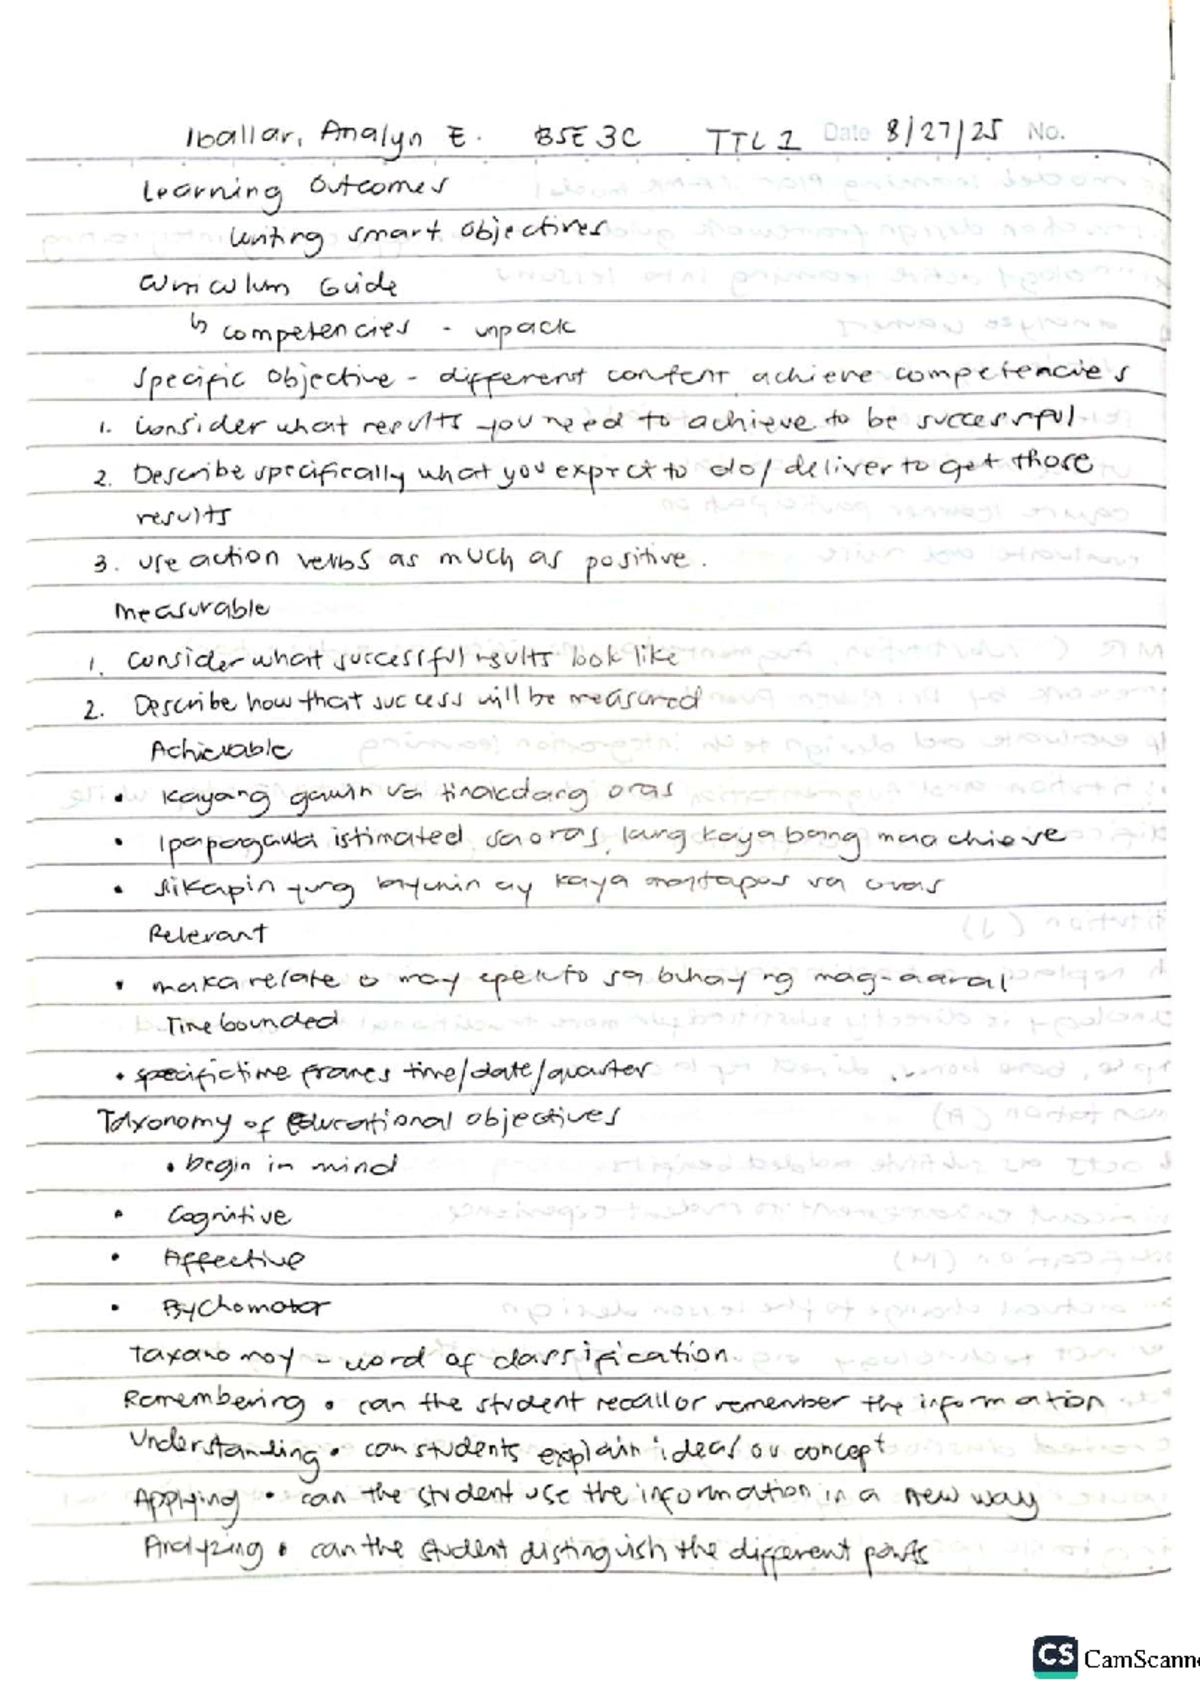 Iballar, Analyn E. BSE 3C TTL 1 Date 8/27/25 No.
Learning Outcomes
Writing smart objectives
Curriculum Guide
↳ competencies - unpack
Specific Objective - different content achieve competencies
1. Consider what results you need to achieve to be successful
2. Describe specifically what you expect to do/deliver to get those
results
3. Use action verbs as much as positive.
Measurable
1. Consider what successful results look like
2. Describe how that success will be measured
Achievable
• Kayang gawin sa tinakdang oras
• Ipapagawa istimated sa oras, kung kaya bang maachieve
• Sikapin yung layunin ay kaya matapos sa oras
Relevant
• makarelate o may epekto sa buhay ng mag-aaral
Timebounded
• specific time frames time/date/quarter
Taxonomy of Educational objectives
• begin in mind
• Cognitive
• Affective
• Psychomotor
Taxanomoy - word of classification
Remembering • can the student recall or remember the information
Understanding • can students explain ideas or concept
Applying • can the student use the information in a new way
Analyzing • can the student distinguish the different parts
CS CamScanne